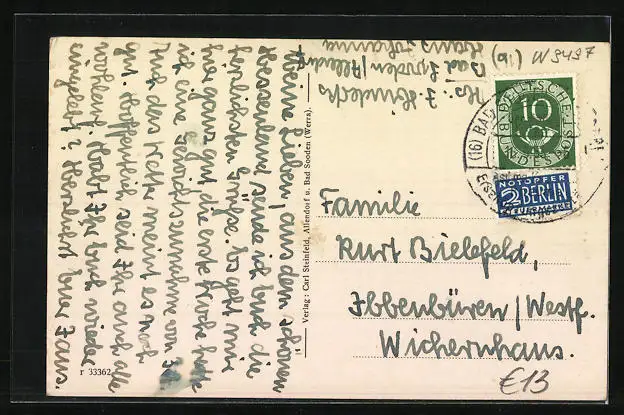 Meine Lieben, aus dem schönen
Hessenland sende ich Euch die
herzlichsten Grüße. Es geht mir
hier ganz gut die erste Woche hatte
ich eine Gewichtszunahme von 3
Auch das Wetter meint es noch
gut. Hoffentlich seid Ihr auch alle
wohlauf. Habt Ihr Euch wieder
eingelebt? Herzlichst Euer Hans.
r 33362
Verlag: Carl Steinfeld, Allendorf u. Bad Sooden (Werra).
J. Hinderks
Bad Sooden/Allend
Haus Johanna
(91) W9497
DEUTSCHE
10
BUNDESPOST
(16) BAD
NOTOPFER
2 BERLIN
STEUERMARKE
Familie
Kurt Bielefeld,
Ibbenbüren/Westf.
Wichernhaus.
€13